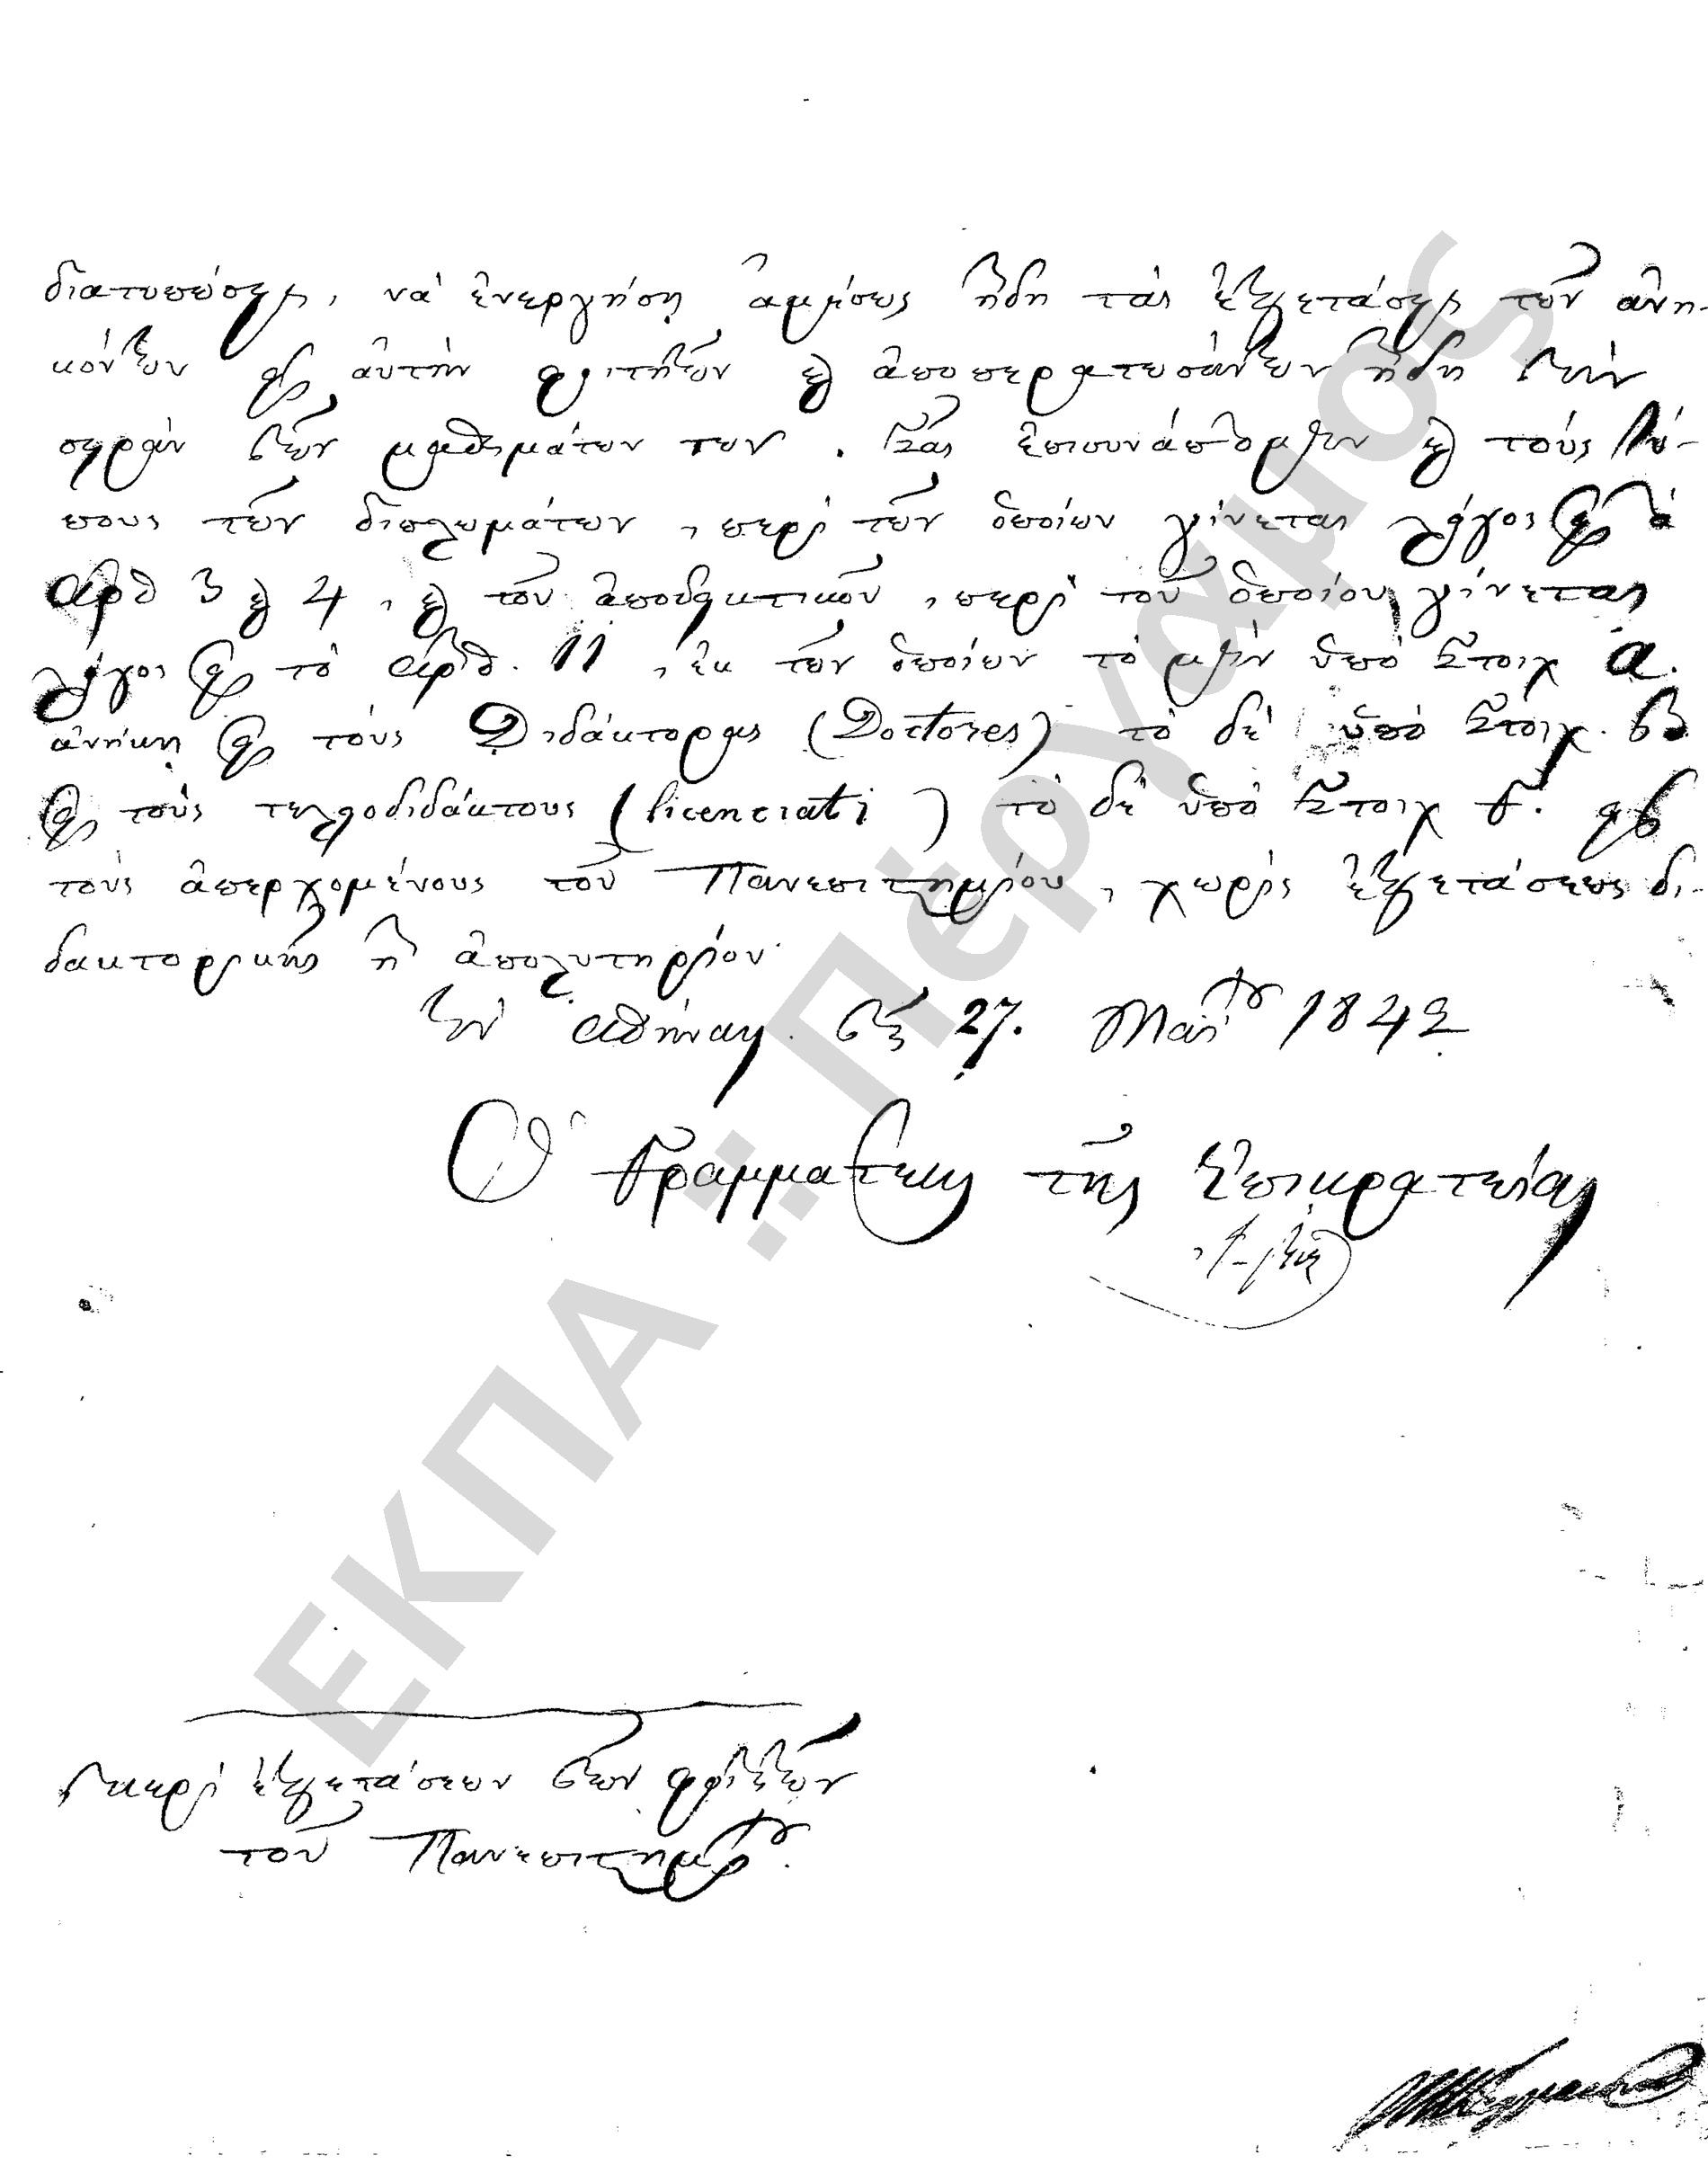 διατυπώσεις, νὰ ἐνεργήσῃ ἀμέσως ἤδη τὰς ἐξετάσεις τῶν ἀνη-
κόντων εἰς αὐτὴν φοιτητῶν καὶ ἀποπερατωσάντων ἤδη τὴν
σειρὰν τῶν μαθημάτων των. Σᾶς ἐπισυνάπτομεν καὶ τοὺς τύ-
πους τῶν διπλωμάτων, περὶ τῶν ὁποίων γίνεται λόγος εἰς τὰ
ἄρθ 3 καὶ 4, καὶ τοῦ ἀποδεικτικοῦ, περὶ τοῦ ὁποίου γίνεται
λόγος εἰς τὸ ἄρθ. 11, ἐκ τῶν ὁποίων τὸ μὲν ὑπὸ Στοιχ α.
ἀνήκει εἰς τοὺς Διδάκτορας (Doctores) τὸ δὲ ὑπὸ Στοιχ. β
εἰς τοὺς τελειοδιδάκτους (licenciati) τὸ δὲ ὑπὸ Στοιχ γ. εἰς
τοὺς ἀπερχομένους τοῦ Πανεπιστημείου, χωρὶς ἐξετάσεως δι-
δακτορικῆς ἢ ἀπολυτηρίου.
Ἐν Ἀθήναις τῇ 27. Μαΐου 1842
Ὁ Γραμματεὺς τῆς Ἐπικρατείας
περὶ ἐξετάσεων τῶν φοιτητῶν
τοῦ Πανεπιστημείου.
ΕΚΠΑ :: Πέργαμος